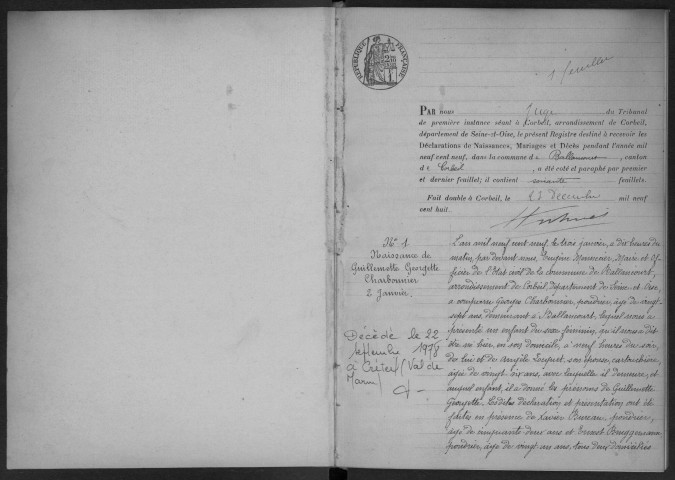 RÉPUBLIQUE FRANÇAISE
1er feuillet
PAR nous Juge du Tribunal
de première instance séant à Corbeil, arrondissement de Corbeil,
département de Seine-et-Oise, le présent Registre destiné à recevoir les
Déclarations de Naissances, Mariages et Décès pendant l'année mil
neuf cent neuf, dans la commune de Ballancourt, canton
de Corbeil, a été coté et paraphé par premier
et dernier feuillet; il contient soixante feuillets.
Fait double à Corbeil, le 23 Décembre mil neuf
cent huit.
No 1
Naissance de
Guillemette Georgette
Charbonnier
2 Janvier.
Décédé le 22
septembre 1978
à Créteil (Val de
Marne)
L'an mil neuf cent neuf, le trois janvier, à dix heures du
matin, par devant nous, Eugène, Maire et Of-
ficier de l'Etat civil de la commune de Ballancourt,
arrondissement de Corbeil, département de Seine et Oise,
a comparu Georges Charbonnier, poudrier, âgé de vingt-
sept ans, demeurant à Ballancourt, lequel nous a
présenté un enfant du sexe féminin, qu'il nous a dit
être né hier, en son domicile, à neuf heures du soir,
de lui et de Angèle, son épouse, cartouchière,
âgée de vingt six ans, avec laquelle il demeure, et
auquel enfant, il a donné les prénoms de Guillemette
Georgette. Lesdites déclaration et présentation ont été
faites en présence de Xavier Bureau, poudrier,
âgé de cinquante deux ans et Ernest Bruggemann,
poudrier, âgé de vingt un ans, tous deux domiciliés